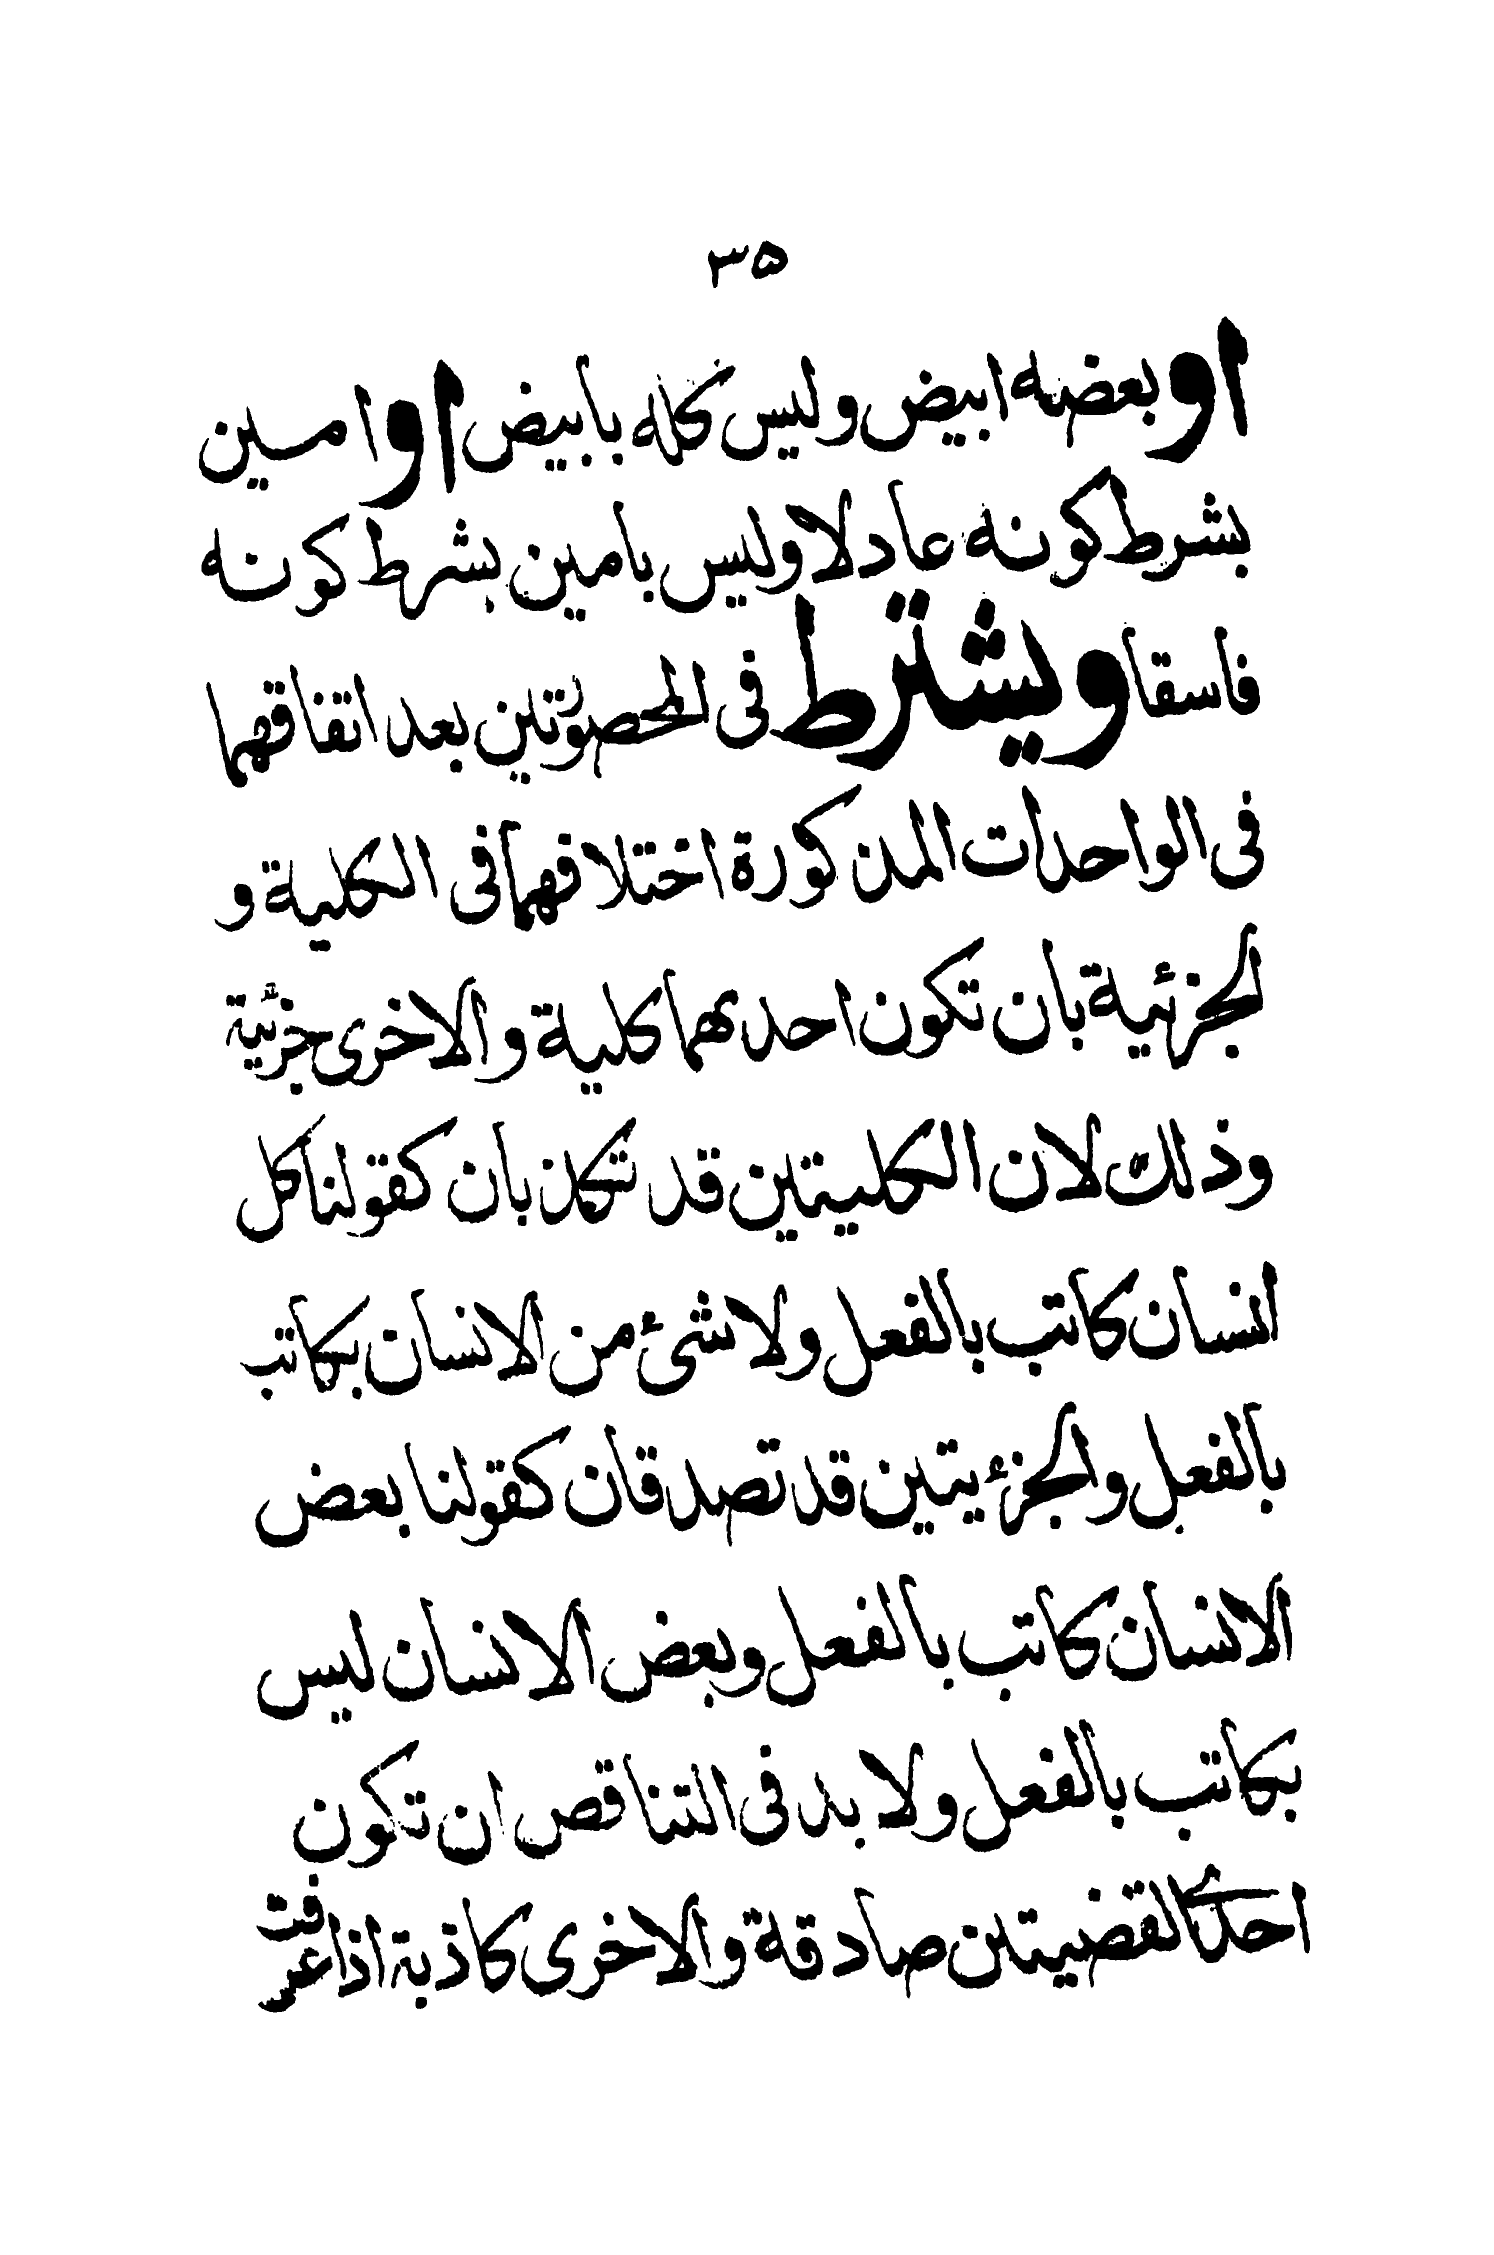 ٣٥
او بعضه ابيض وليس كله بابيض او امين
بشرط كونه عادلا وليس بامين بشرط كونه
فاسقا ويشترط فى المحصورتين بعد اتفاقهما
فى الواحدات المذكورة اختلافهما فى الكلية و
الجزئية بان تكون احدىهما كلية والاخرى جزئية
وذلك لان الكليتين قد تكذبان كقولنا كل
انسان كاتب بالفعل ولا شئ من الانسان بكاتب
بالفعل والجزءيتين قد تصدقان كقولنا بعض
الانسان كاتب بالفعل وبعض الانسان ليس
بكاتب بالفعل ولا بد فى التناقص ان تكون
احدى القضيتين صادقة والاخرى كاذبة اذا عرفت